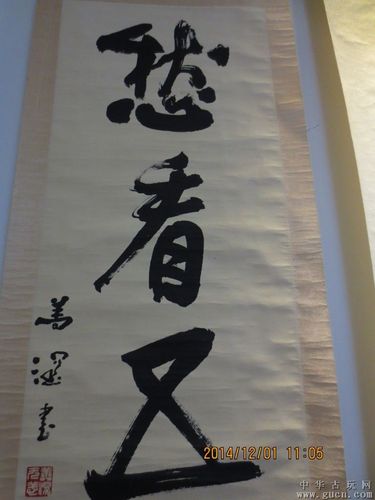 愁看五
書
2014/12/01 11:05
中华古玩网
www.gucn.com